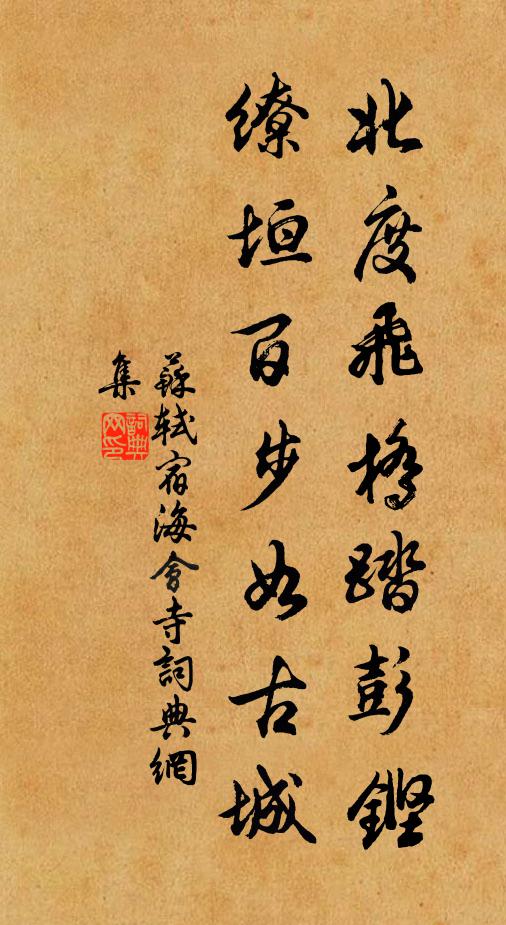 北度飛橋踏彭鏗
繚垣百步如古城
蘇軾宿海會寺詞典網
集
詞典網印